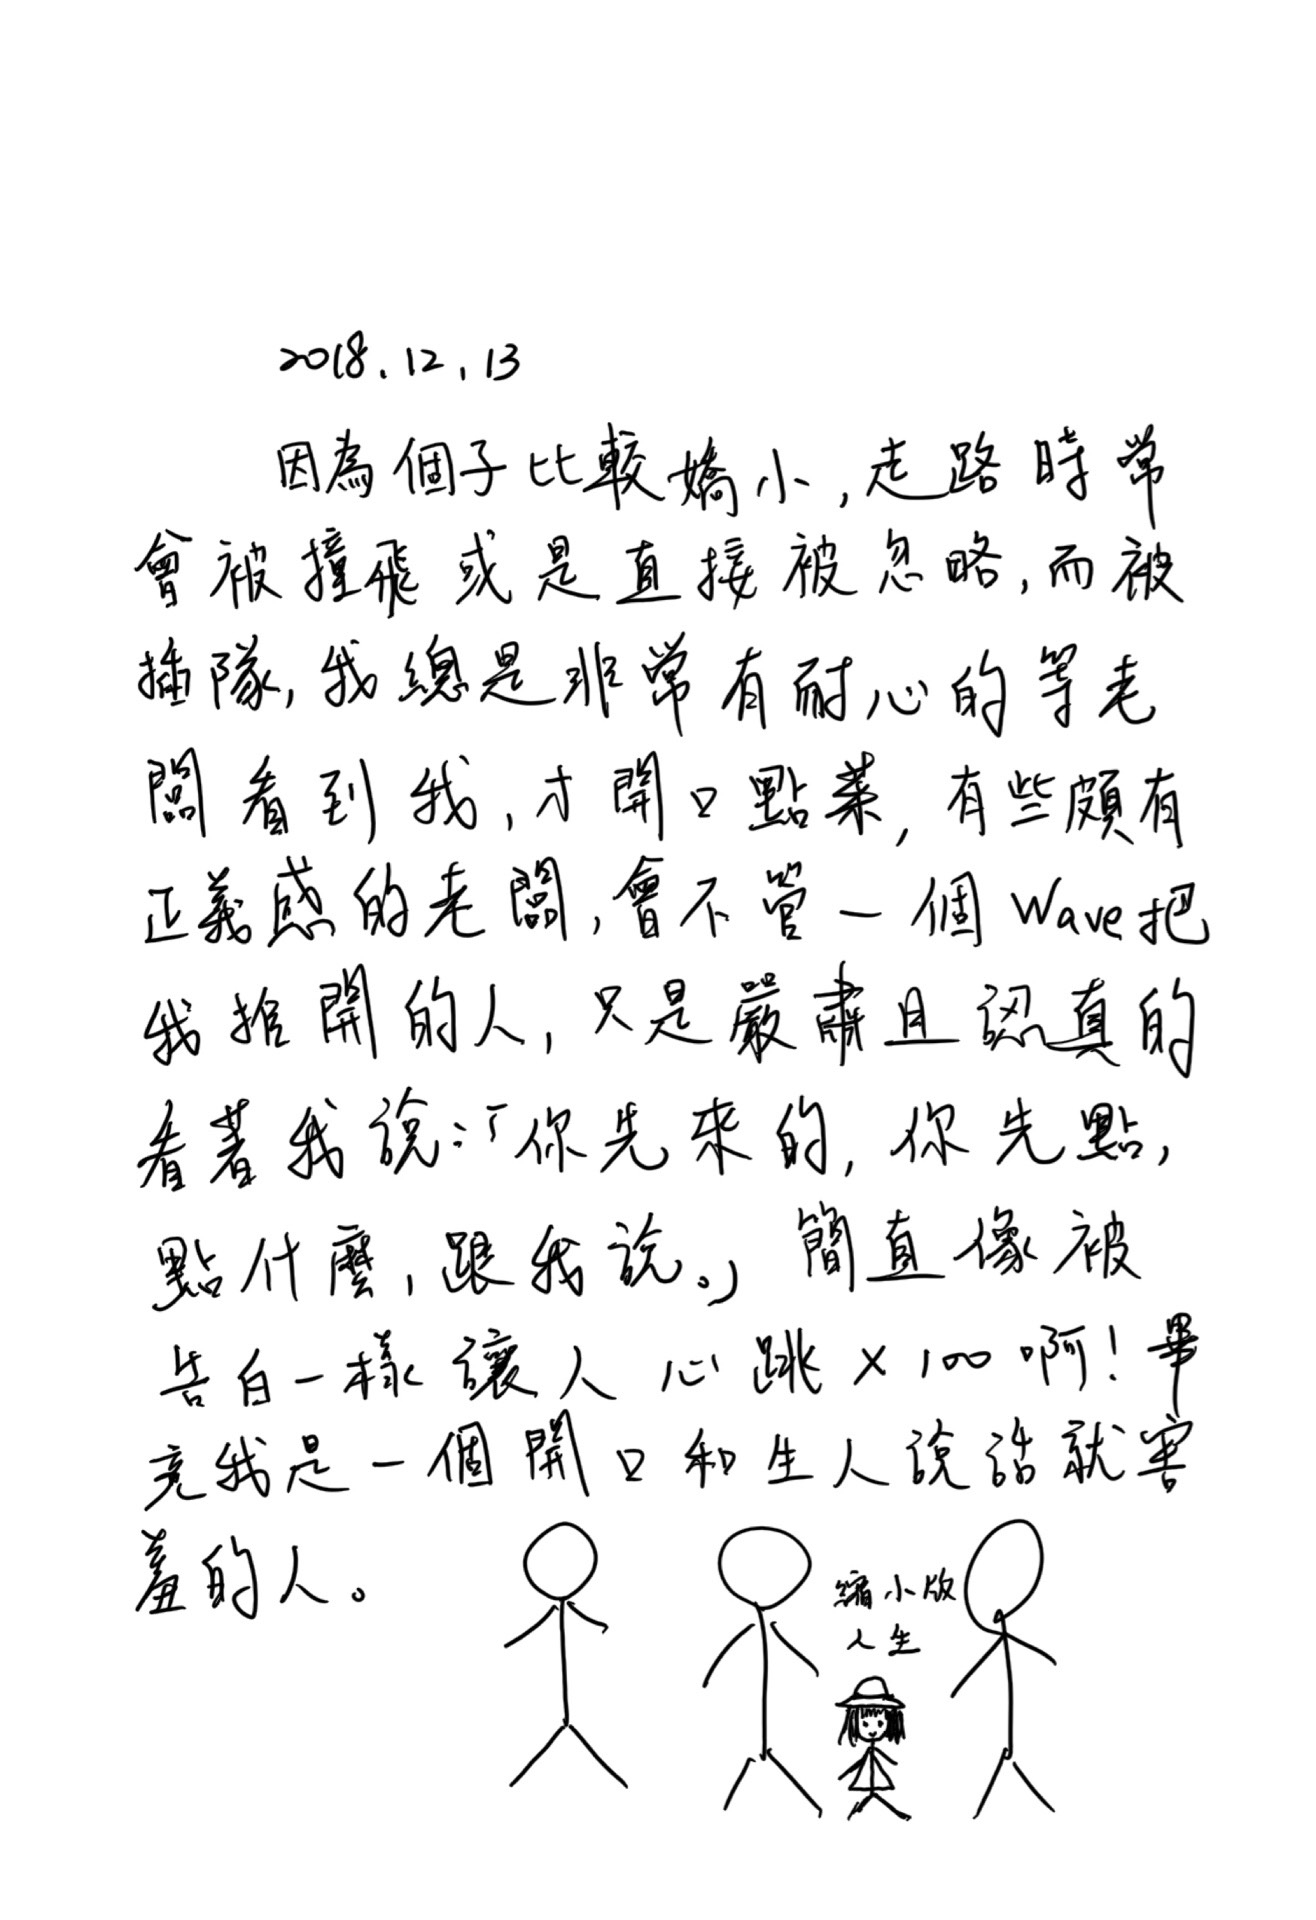 2018.12.13
因為個子比較嬌小,走路時常
會被撞飛或是直接被忽略,而被
插隊,我總是非常有耐心的等老
闆看到我,才開口點菜,有些頗有
正義感的老闆,會不管一個Wave把
我推開的人,只是嚴肅且認真的
看著我說:「你先來的,你先點,
點什麼,跟我說。」簡直像被
告白一樣讓人心跳×100啊!畢
竟我是一個開口和生人說話就害
羞的人。
縮小版
人生